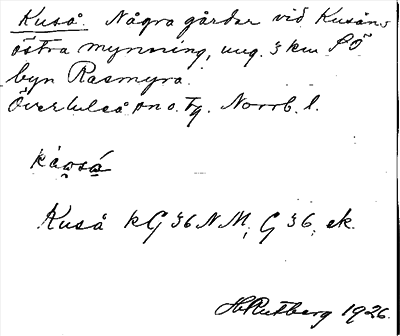 Kuså. Några gårdar vid Kusåns
östra mynning, ung. 3 km SÖ
byn Rasmyra.
Överluleå sn o. tg. Norrb. l.
Kuså kG 36 NM, G 36, ek.
H Rutberg 1926.